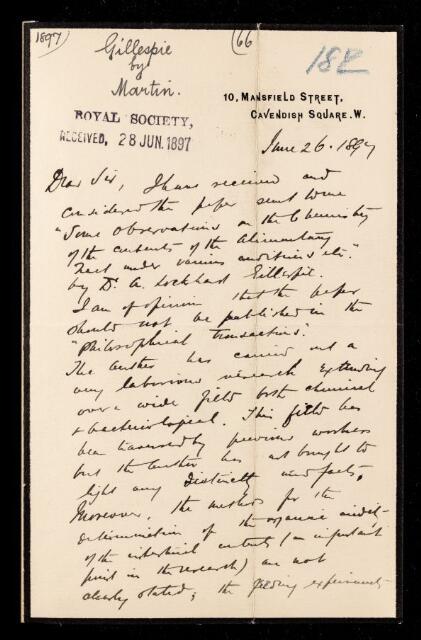 1897
(66
Gillespie
by
Martin.
182
10, MANSFIELD STREET,
CAVENDISH SQUARE. W.
ROYAL SOCIETY,
RECEIVED, 28 JUN. 1897
June 26. 1897
Dear Sir, I have received and
considered the paper sent to me
"Some observations on the Chemistry
of the contents of the Alimentary
Tract under various conditions etc."
by Dr. A. Lockhart Gillespie.
I am of opinion that the paper
should not be published in the
"Philosophical transactions".
The author has carried out a
very laborious research extending
over a wide field both chemical
& bacteriological. This field has
been traversed by previous workers
but the author has not brought to
light any distinctly new facts,
Moreover, the methods for the
determination of the organic acidity
of the intestinal contents (an important
point in the research) are not
clearly stated; the feeding experiments